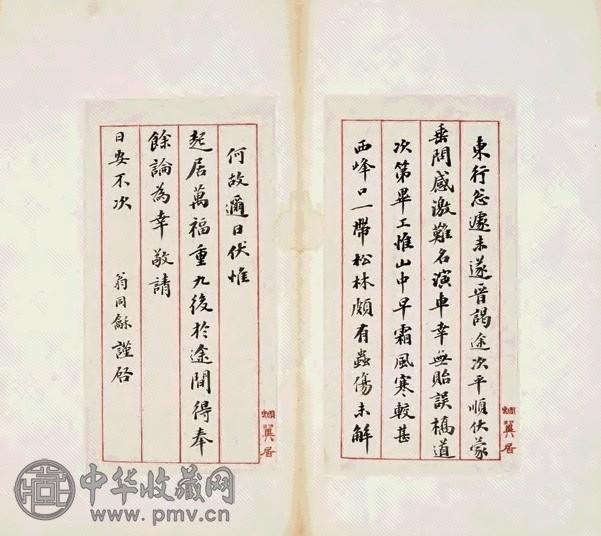 東行怱遽未遂晉謁途次平順伏蒙
垂問感激難名演車幸無貽誤橋道
次第畢工惟山中早霜風寒較甚
西峰口一帶松林頗有蟲傷未解
蜩翼居
何故邇日伏惟
起居萬福重九後於途間得奉
餘論為幸敬請
日安不次
翁同龢謹啓
蜩翼居
中华收藏网
www.pmv.cn